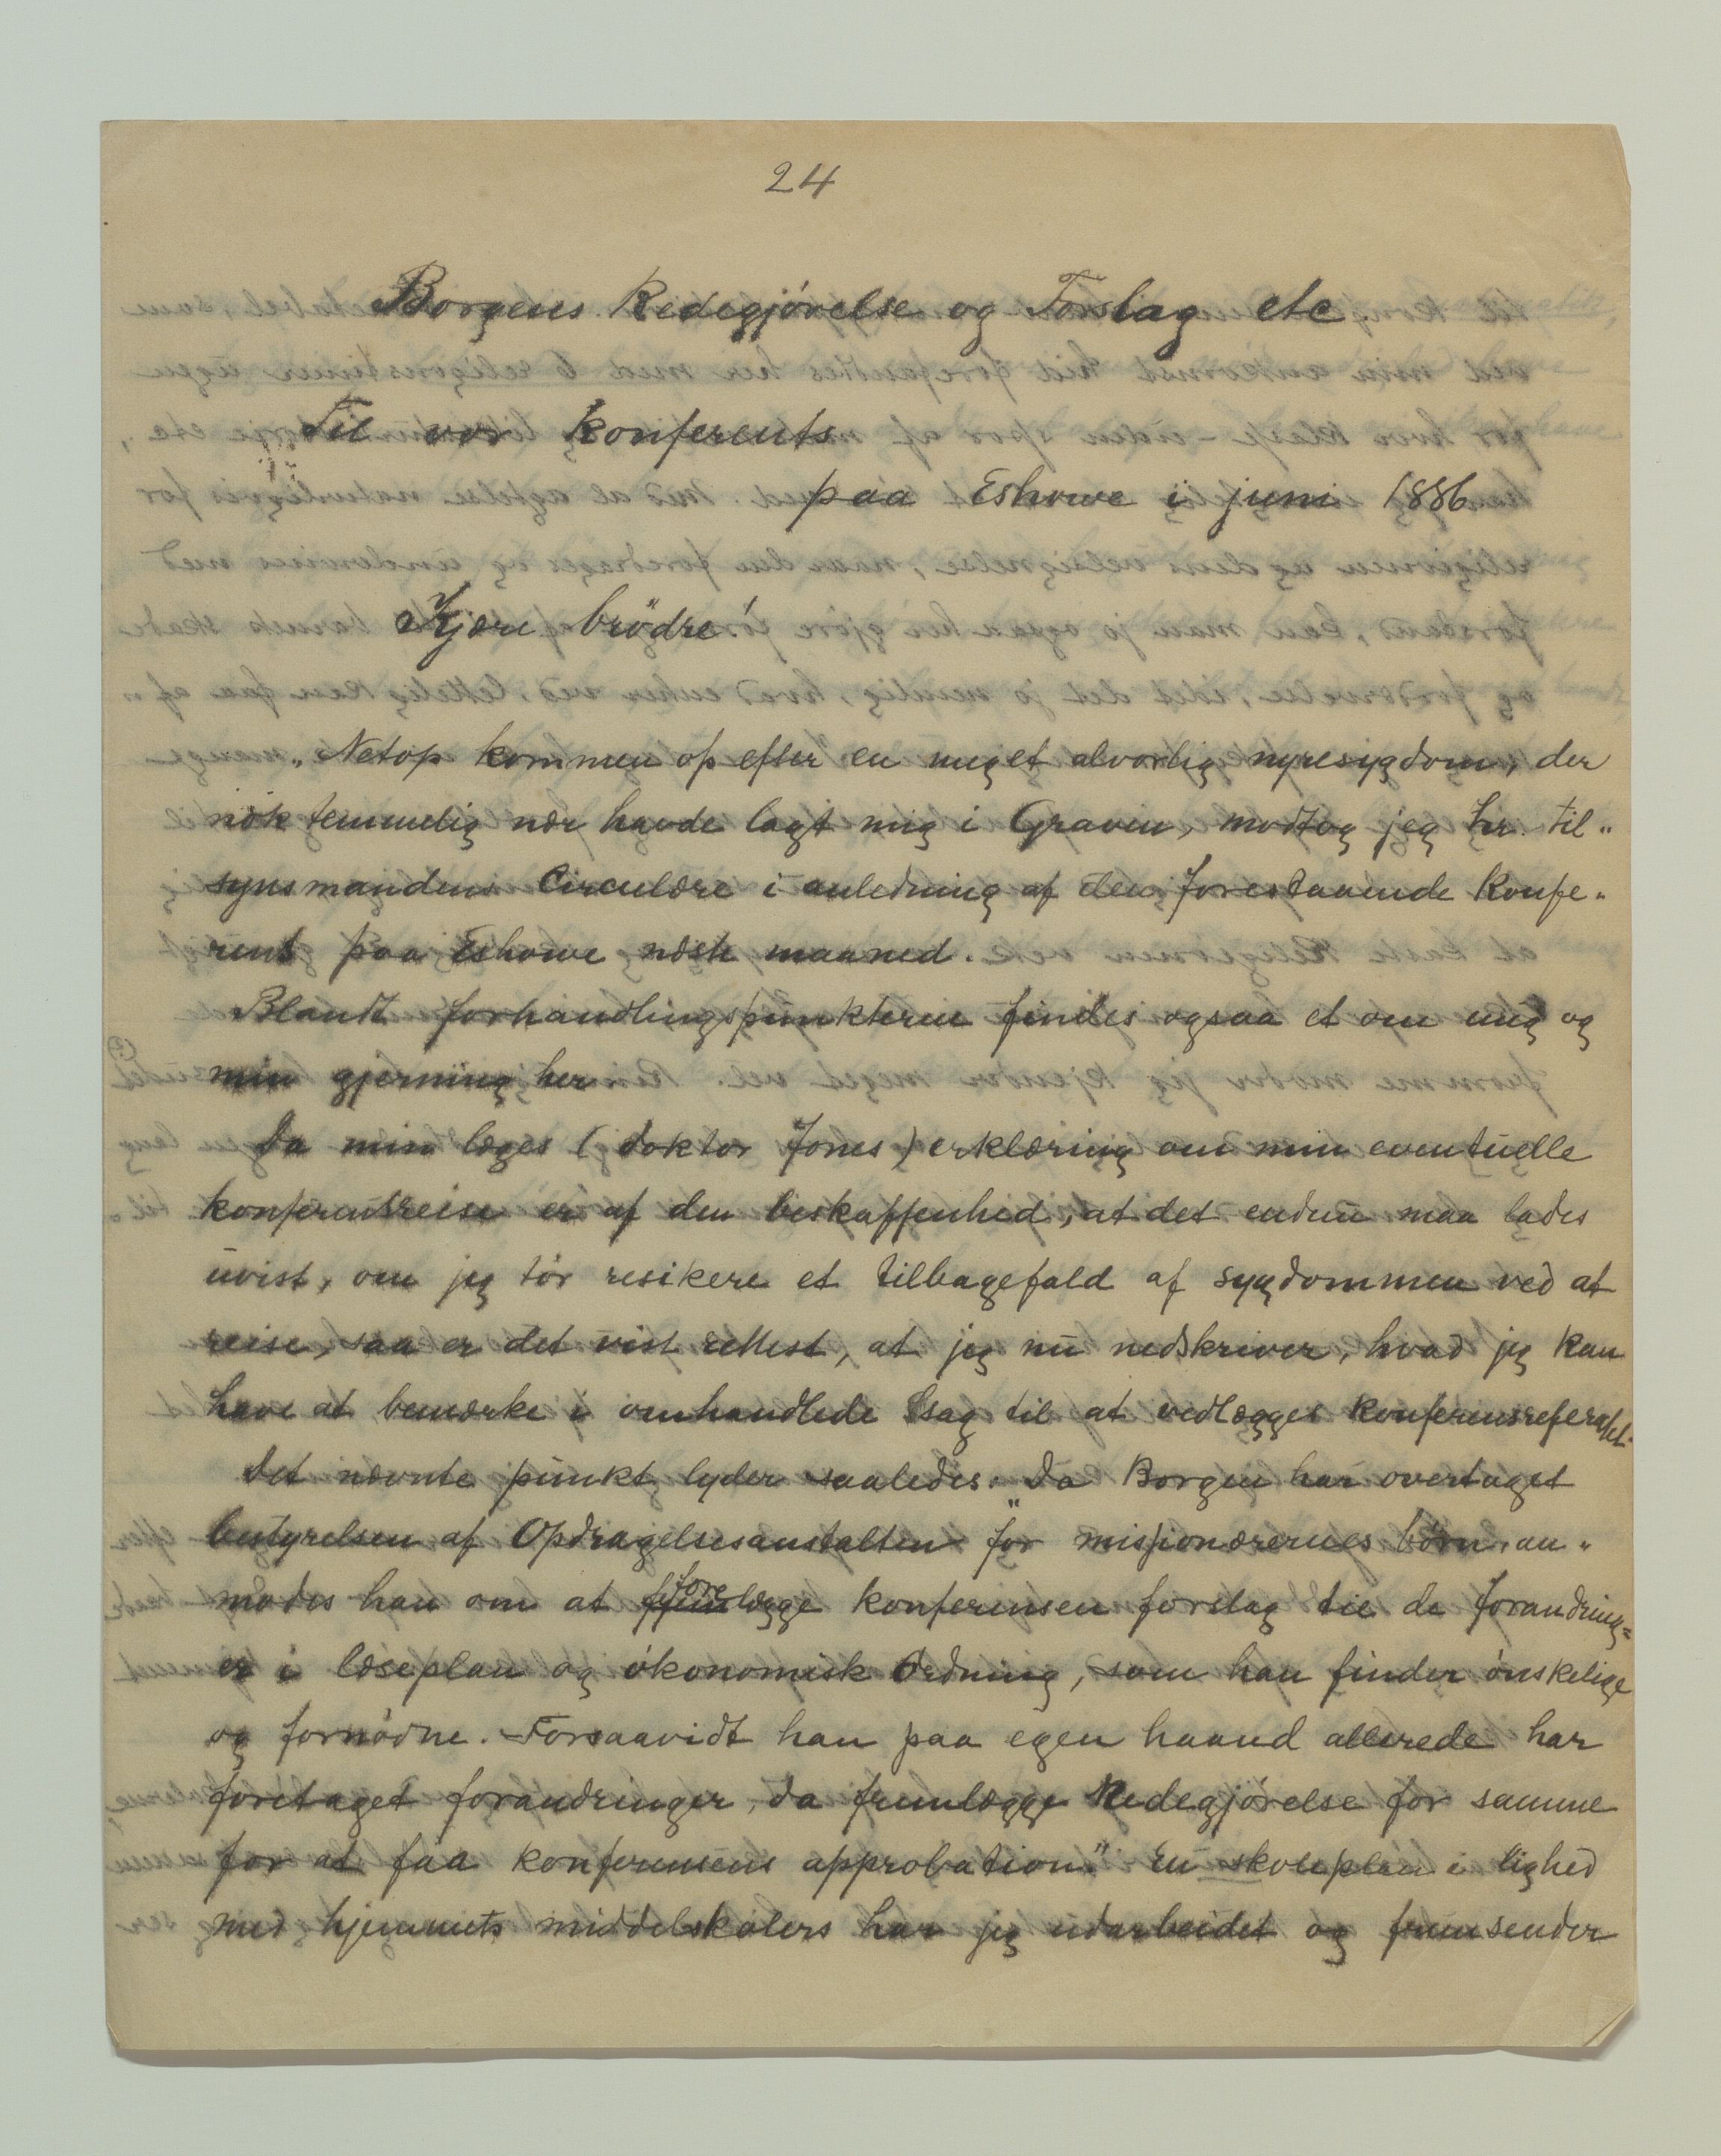 24
Borgens Redegjörelse og Forslag etc.
Til vor Konferents
paa Eshowe i juni 1886.
Kjære brödre!
„Netop kommen op efter en meget alvorlig nyresygdom, der
nok temmelig nær havde lagt mig i Graven, modtog jeg hr. til„
synsmandens Circulære i anledning af den forestaaende Konfe„
rens paa Eshowe næste maaned.
Blandt forhandlingspunkterne findes ogsaa et om mig og
min gjerning her
Da min læges (doktor Jones) erklæring om min eventuelle
konferentsreise er af den beskaffenhed, at det endnu maa lades
uvist, om jeg tör resikere et tilbagefald af sygdommen ved at
reise, saa er det vist rettest, at jeg nu nedskriver, hvad jeg kan
have at bemærke i omhandlede Sag til at vedlægges Konferensreferatet.
Det nævnte punkt lyder saaledes: "Da Borgen har overtaget
bestyrelsen af Opdragelsesanstalten for missionærernes börn, an„
modes han om at forelægge konferensen forslag til de forandring=
er i læseplan og ökonomisk Ordning, som han finder önskelige
og fornödne. Forsaavidt han paa egen haand allerede har
foretaget forandringer, da fremlægge Redegjörelse for samme
for at faa konferensens approbation." En skoleplan i lighed
med hjemmets middelskolers har jeg udarbeidet og fremsender